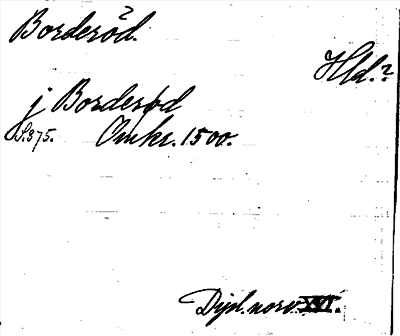 Borderöd.
Hld.?
j Borderöd
S. 375. Omkr. 1500.
Dipl. norv. XVI.